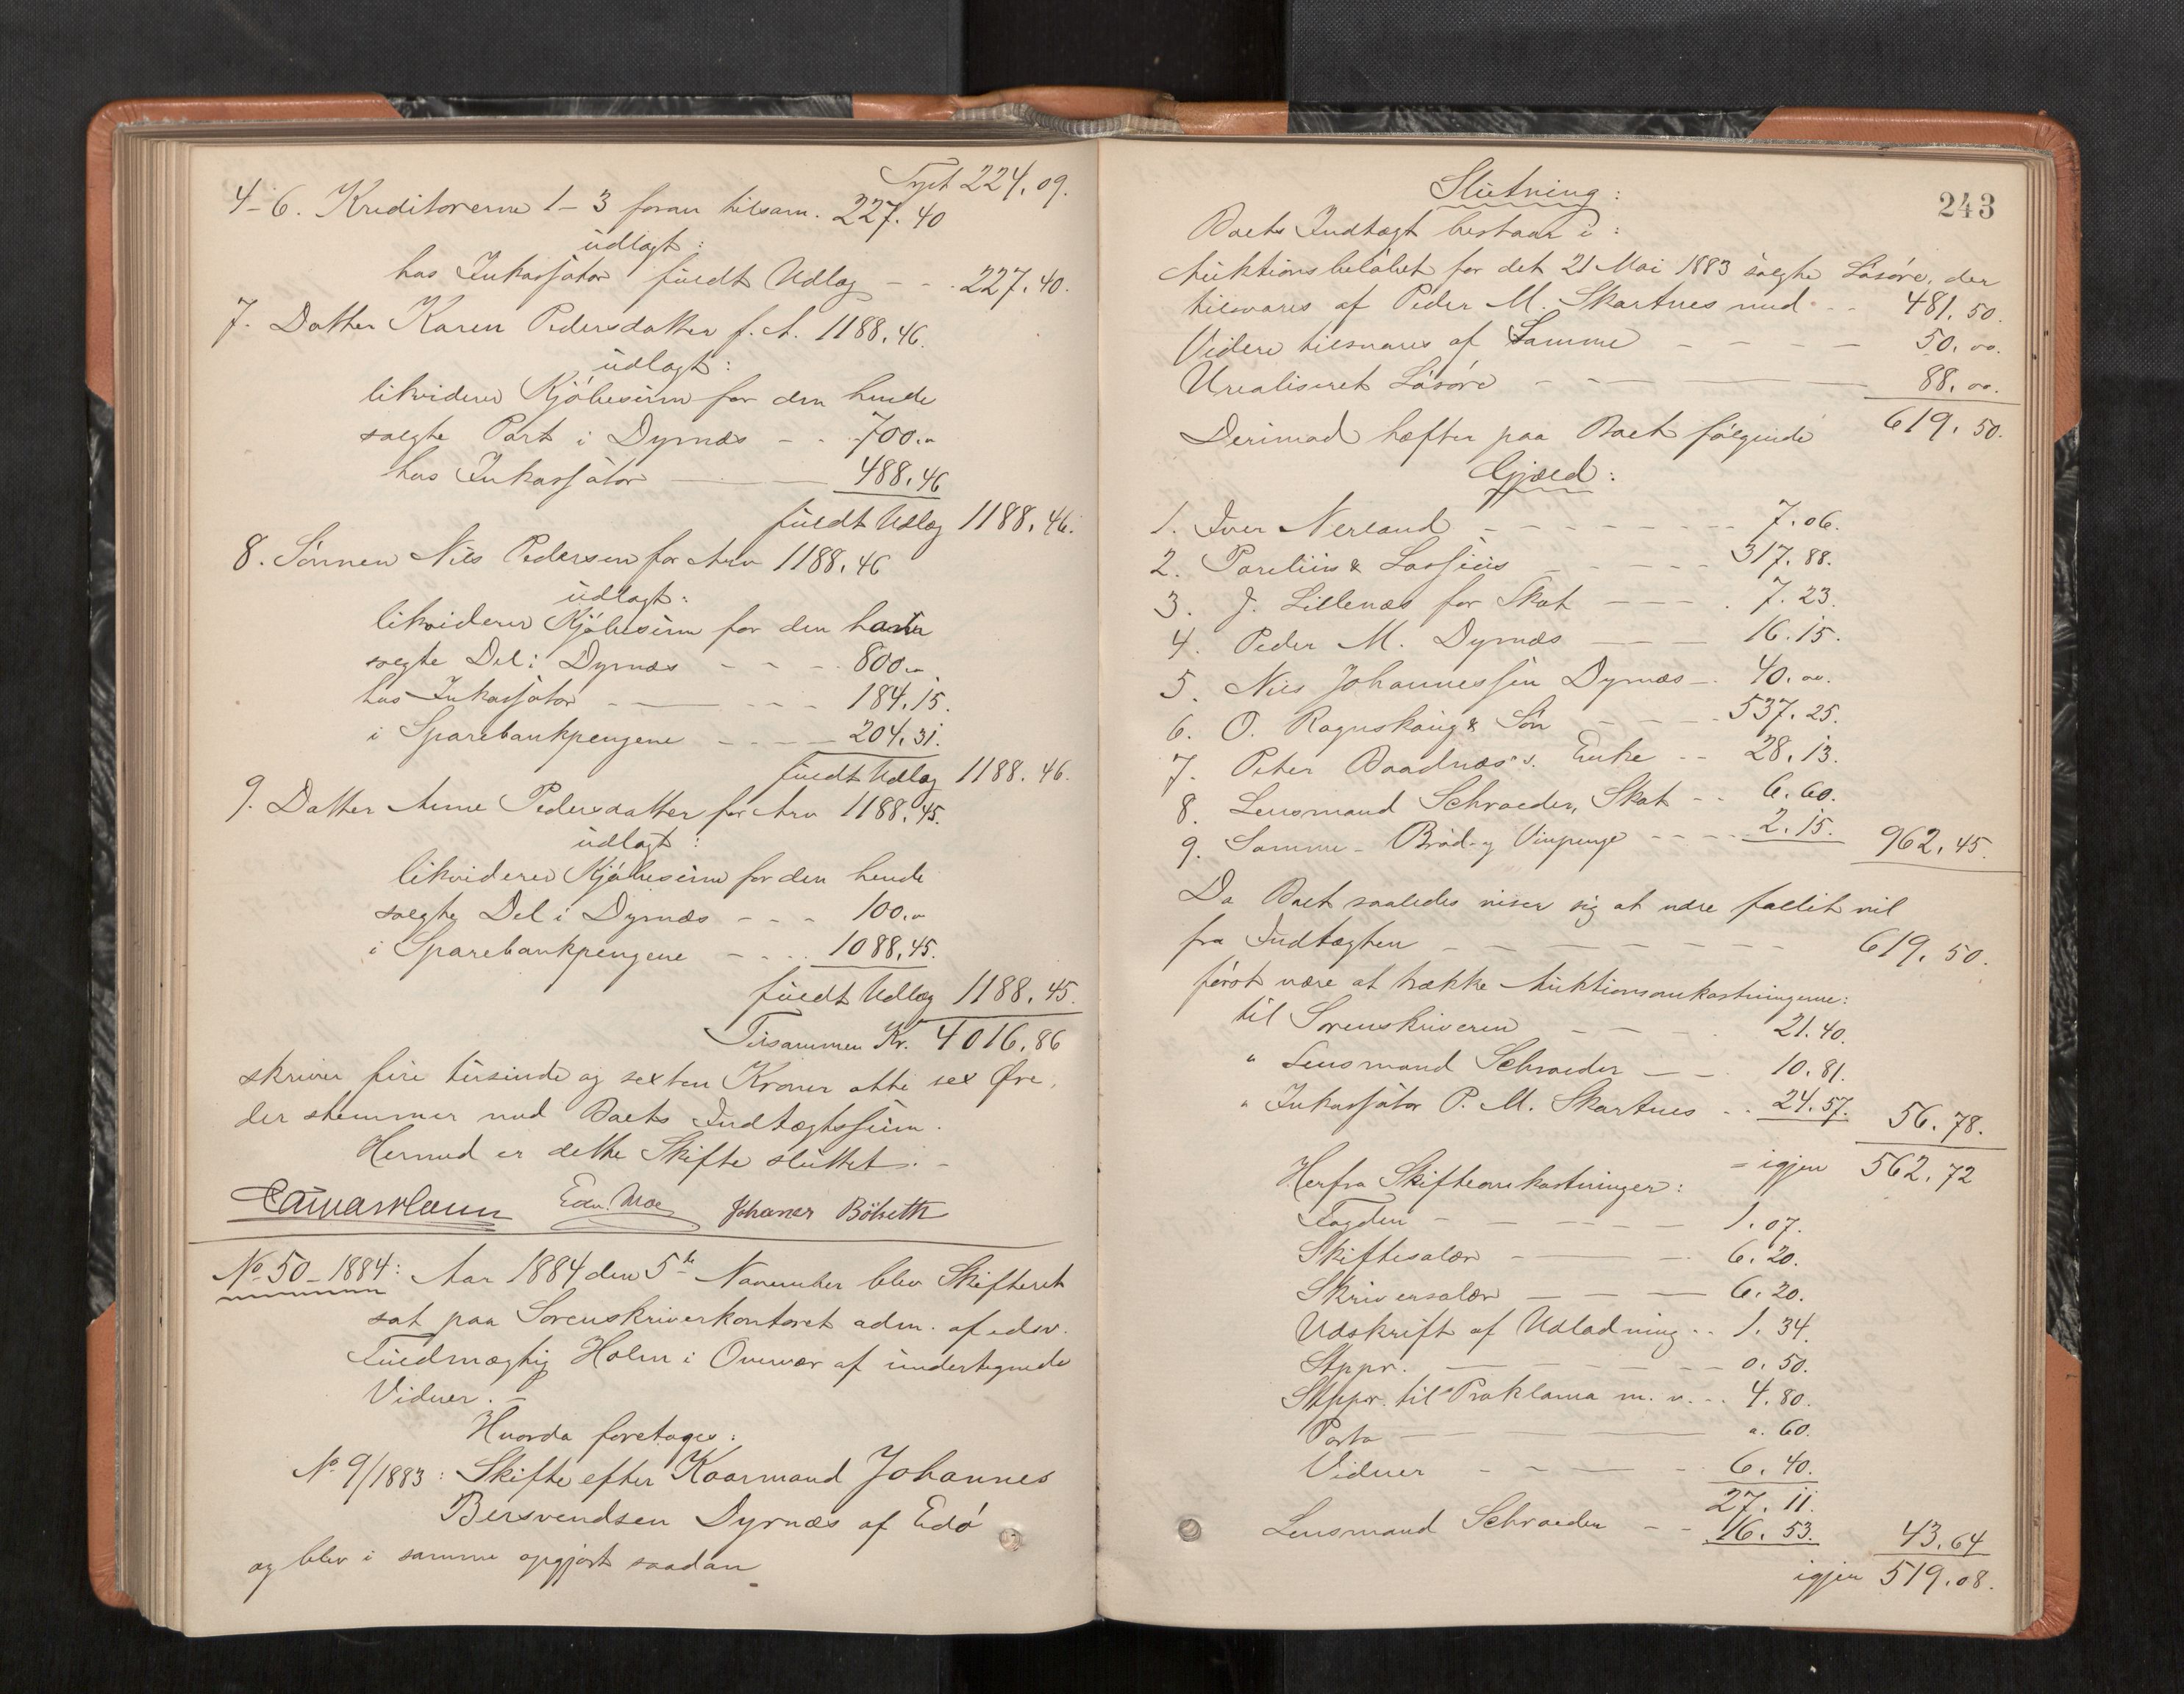 Trpt 224.09.
4-6. Kreditorerne 1-3 foran tilsam. 227.40
udlagt:
hos Inkassator fuldt Udlæg - - . 227.40.
7. Datter Karen Pedersdatter f. A. 1188.46.
udlagt:
likviderer Kjöbesum for den hende
solgte Part i Dyrnæs - - 700.„
hos Inkassator — 488.46
fuldt Udlæg 1188.46.
8. Sönnen Nils Pedersen for Arv 1188.46
udlagt:
likviderer Kjöbesum for den ham
solgte Del i Dyrnæs - - - 800.„
hos Inkassator - — - - - 184.15.
i Sparebankpengene - - - - 204.31.
fuldt Udlæg 1188.46.
9. Datter Anne Pedersdatter for Arv 1188.45.
udlagt:
likviderer Kjöbesum for den hende
solgte Del i Dyrnæs - - - 100.„
i Sparebankpengene - - . . 1088.45.
fuldt Udlæg 1188.45.
Tilsammen Kr. 4016.86
skriver fire tusinde og sexten Kroner otti sex Øre,
der stemmer med Boets Indtægtssum.
Hermed er dette Skifte sluttet. -
Edv. Moe Johaner Bölseth
No 50-1884: Aar 1884 den 5te November blev Skifteret
sat paa Sorenskriverkontoret adm. af edsv.
Fuldmægtig Holm i Overvær af undertegnede
Vidner. -
Hvorda foretoges:
No 9/1883: Skifte efter Kaarmand Johannes
Bersvendsen Dyrnæs af Edö
og blev i samme opgjort saadan
243
Slutning:
Boets Indtægt bestaar i:
Auktionsbelöbet for det 21 Mai 1883 solgte Lösöre, der
tilsvares af Peder M. Skartnes med - - 481.50.
Videre tilsvares af Samme - - - - - 50.00.
Urealiseret Lösöre - - — 88.00.
619.50.
Derimod hæfter paa Boet fölgende
Gjæld:
1. Iver Nerland - - - - - - - - 7.06.
2. Parelius & Lossius - - - - - 317.88.
3. J. Lillenæs for Skat - - - . 7.23.
4. Peder M. Dyrnæs — - 16.15.
5. Nils Johannessen Dyrnæs - . 40.00.
6. O. Ragnskaug & Sön - - - - 537.25.
7. Peter Baadnæs's. Enke - - 28.13.
8. Lensmand Schroeder, Skat - - 6.60.
9. Samme - Bröd- og Vinpenge - - - - 2.15. 962.45.
Da Boet saaledes viser sig at være fallit vil
fra Indtægten - - - - - - - - 619.50.
först være at trække Auktionsomkostningerne:
til Sorenskriveren - - - . 21.40.
„ Lensmand Schroeder - - . 10.81.
„ Inkassator P. M. Skartnes . . 24.57. 56.78.
= igjen 562.72
Herfra Skifteomkostninger:
Fogden - - - - - - - 1.07.
Skiftesalær - — - 6.20.
Skriversalær - - - — 6.20.
Udskrift af Udlodning . . 1.34.
Stppr. — - - - - - 0.50.
Stppr. til Proklama m. v. . . 4.80.
Porto - — - „.60.
Vidner - - - — - 6.40.
27.11.
Lensmand Schroeder - - 16.53. 43.64
igjen 519.08.